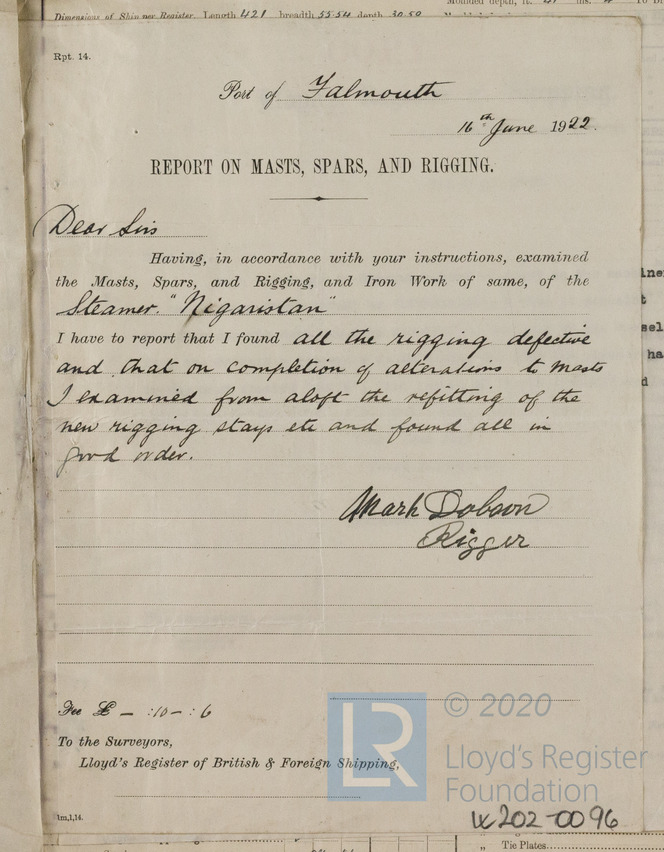 Dimensions of Ship per Register. Length 421 breadth 55.54 depth 30.50
Rpt. 14.
Port of Falmouth
16th June 1922.
REPORT ON MASTS, SPARS, AND RIGGING.
Dear Sirs
Having, in accordance with your instructions, examined
the Masts, Spars, and Rigging, and Iron Work of same, of the
Steamer. "Nigaristan"
I have to report that I found all the rigging defective
and that on completion of alterations to masts
I examined from aloft the refitting of the
new rigging stays etc and found all in
good order.
Mark Dobson
Rigger
Fee £ – :10– : 6
To the Surveyors,
Lloyd's Register of British & Foreign Shipping,
1m,1,14.
LR
© 2020
Lloyd's Register
Foundation
W202-0096
„ Tie Plates